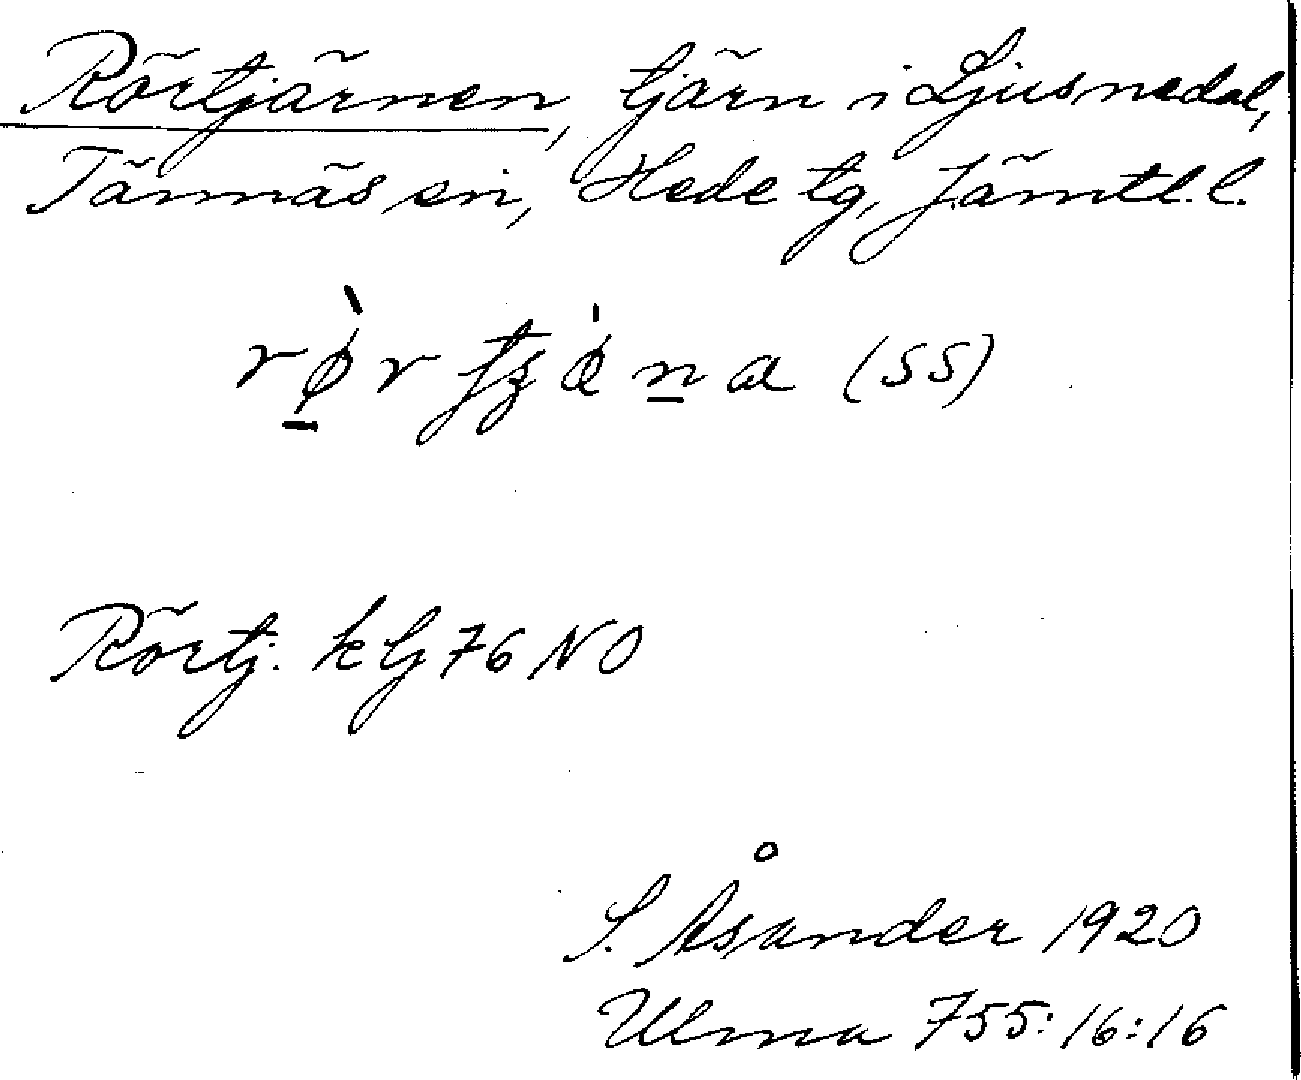 Rörtjärnen, tjärn i Ljusnedal,
Tännäs sn, Hede tg, Jämtl. l.
(SS)
Rörtj. k bj 76 NO
S. Åsander 1920
Ulma 755:16:16